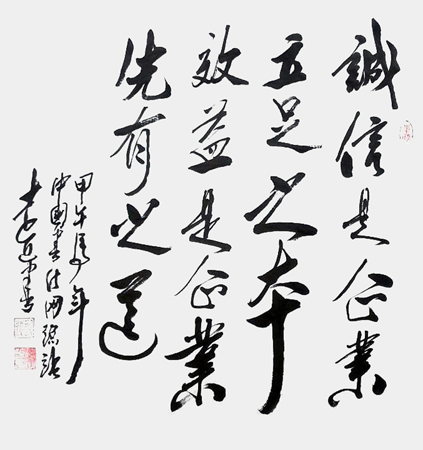 誠信是企業
立足之本
效益是企業
先有之道
甲午馬年
中國書法網